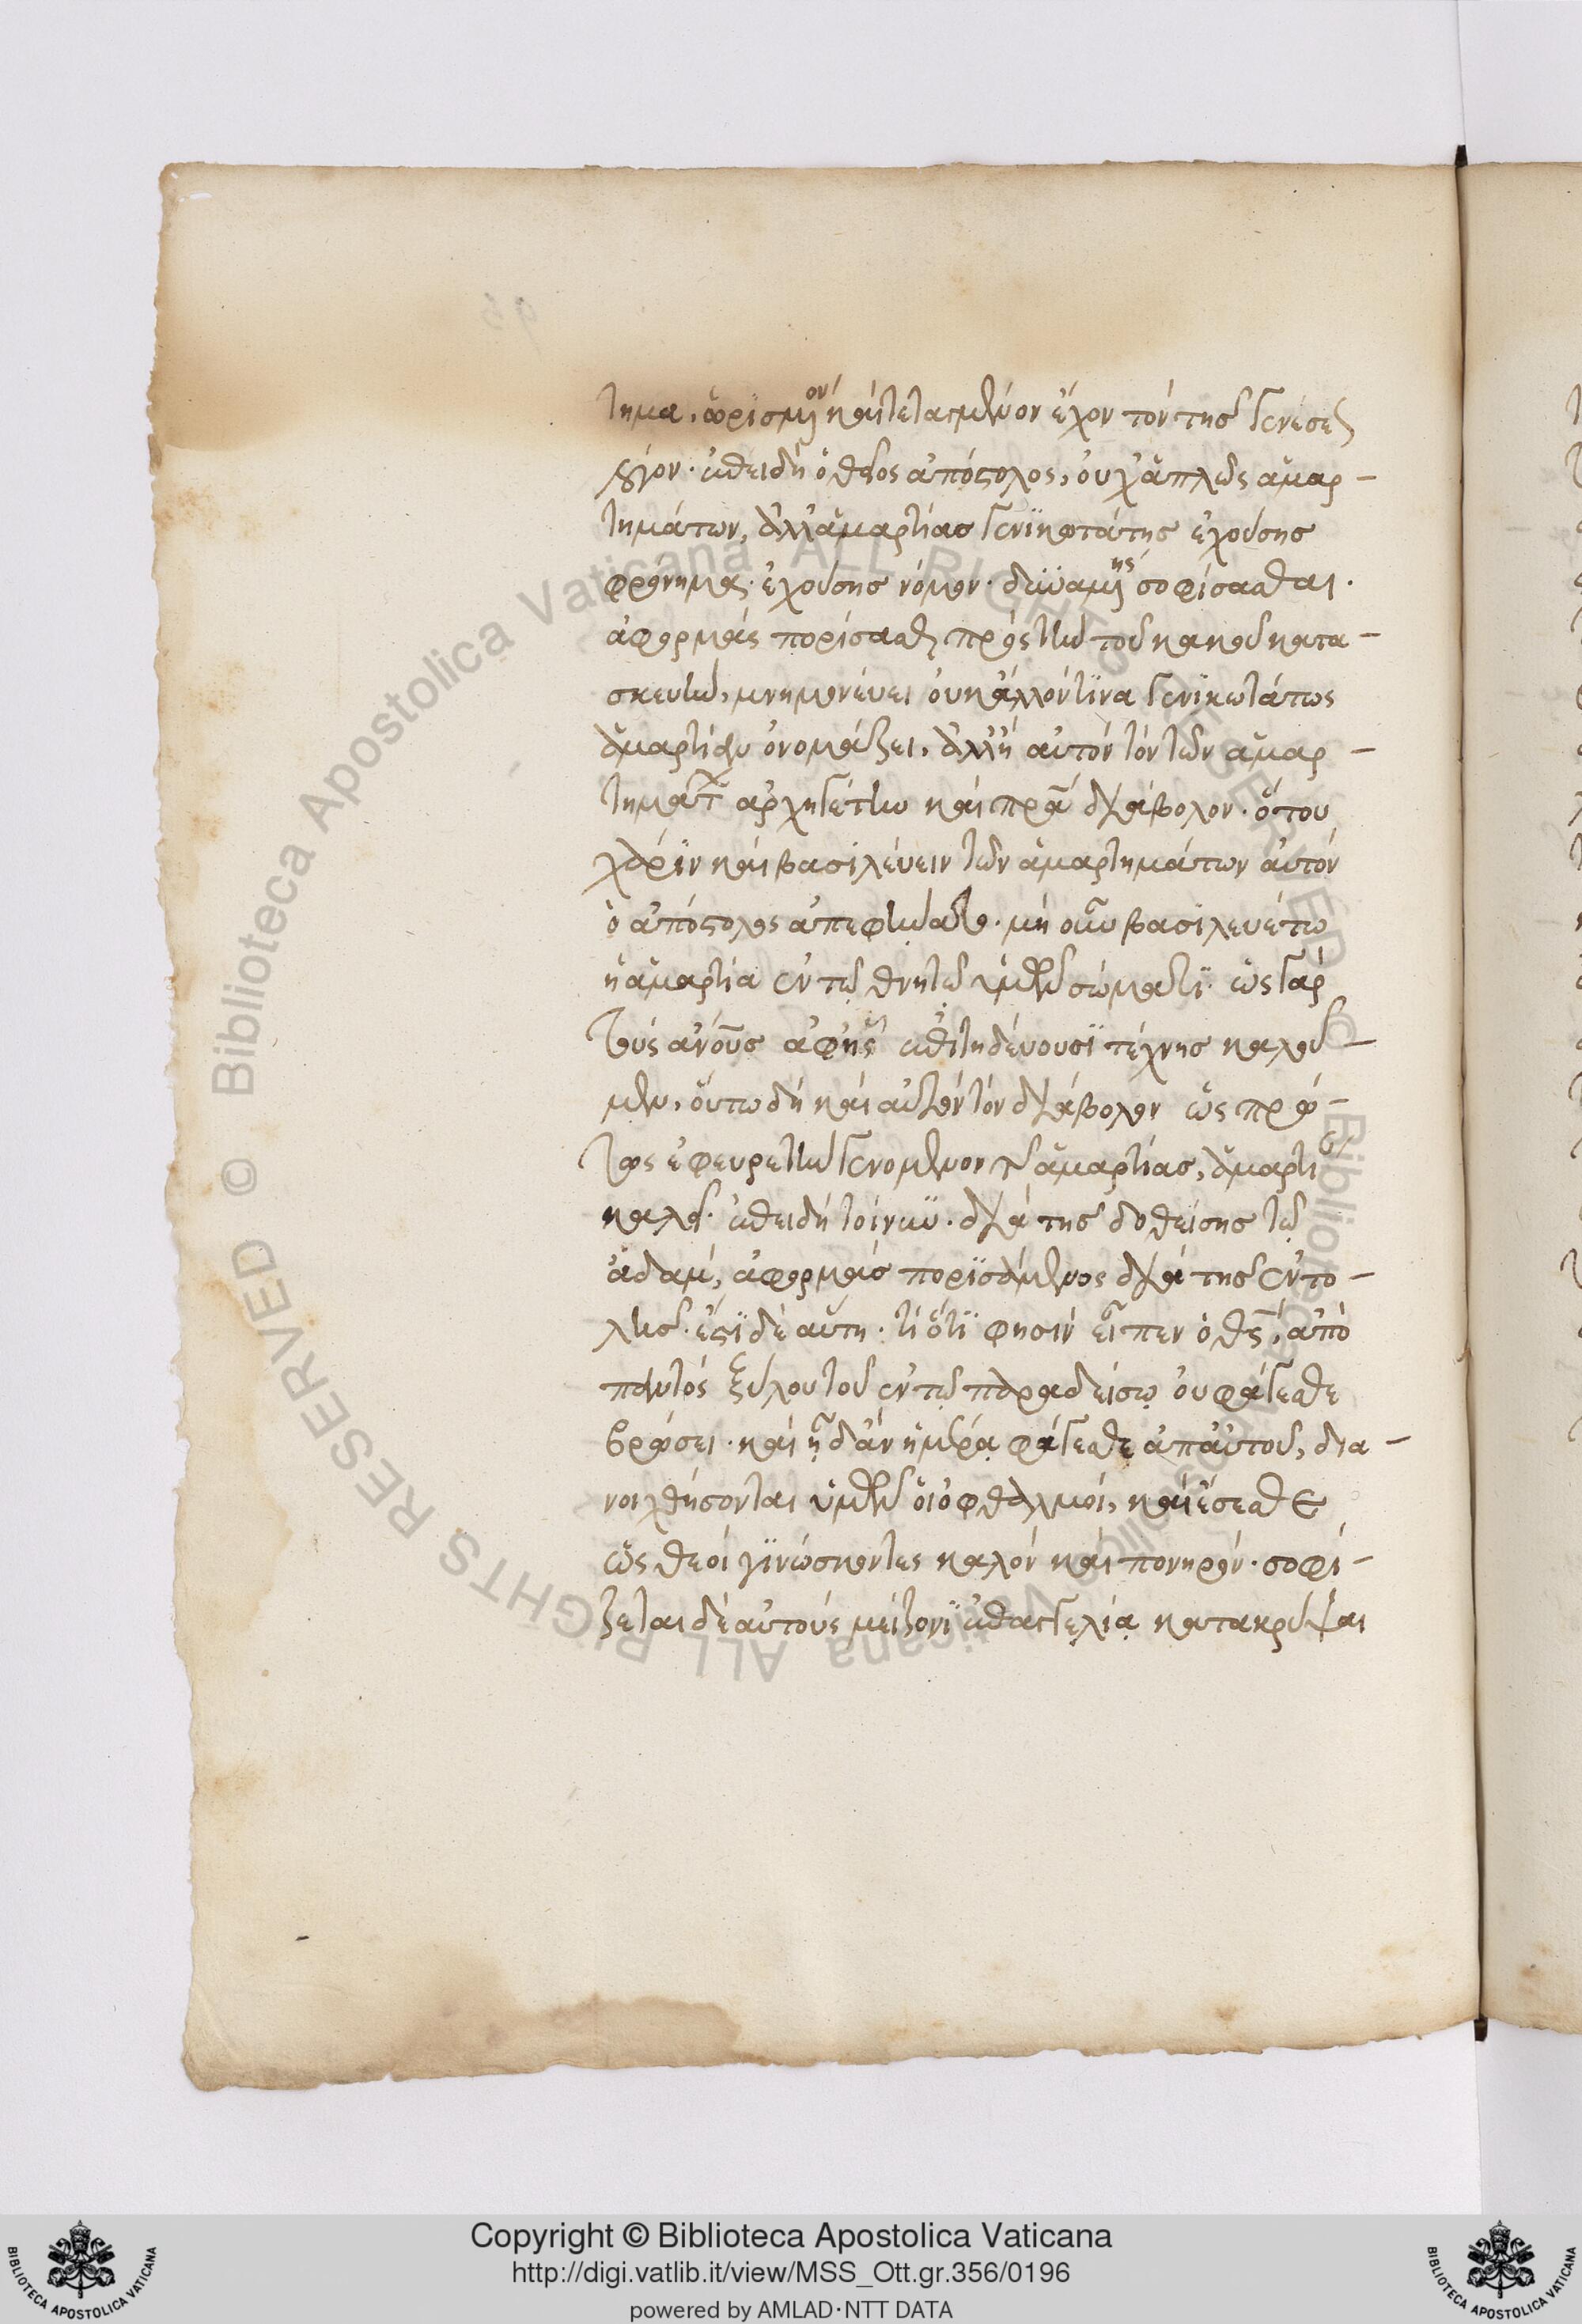 τημα, ὡρισμένον καὶ τεταγμένον ἔχον τὸν τῆς γενέσεως
λόγον. ἐπειδὴ ὁ θεῖος ἀπόστολος, οὐχ ἁπλῶς ἁμαρ-
τημάτων, ἀλλ' ἁμαρτίας γενικωτάτης ἐχούσης
φρόνημα. ἐχούσης νόμον. δυναμένης σοφίσασθαι.
ἀφορμὰς πορίσασθαι πρὸς τὴν τοῦ κακοῦ κατα-
σκευὴν, μνημονεύει οὐκ ἄλλον τινὰ γενικωτάτως
ἁμαρτίαν ὀνομάζει, ἀλλ' ἢ αὐτὸν τὸν τῶν ἁμαρ-
τημάτων ἀρχηγέτην καὶ πατέρα διάβολον. ὅτου
χάριν καὶ βασιλεύειν τῶν ἁμαρτημάτων αὐτὸν
ὁ ἀπόστολος ἀπεφήνατο. μὴ οὖν βασιλευέτω
ἡ ἁμαρτία ἐν τῷ θνητῷ ὑμῶν σώματι. ὡς γὰρ
τοὺς ἀνους ἀφ' ἧς ἐπιτηδεύουσι τέχνης καλοῦ-
μεν, οὕτω δὴ καὶ αὐτὸν τὸν διάβολον ὡς πρώ-
τως ἐφευρετὴν γενόμενον τῆς ἁμαρτίας, ἁμαρτίαν
καλεῖ. ἐπειδὴ τοίνυν. διὰ τῆς δοθείσης τῷ
ἀδὰμ, ἀφορμὰς πορισάμενος διὰ τῆς ἐντο-
λῆς. ἔστι δὲ αὕτη. τί ὅτι φησὶν εἶπεν ὁ θς, ἀπὸ
παντὸς ξύλου τοῦ ἐν τῷ παραδείσῳ οὐ φάγεσθε
βρώσει. καὶ ᾗ δ' ἂν ἡμέρᾳ φάγεσθε ἀπ' αὐτοῦ, δια-
νοιχθήσονται ὑμῶν οἱ ὀφθαλμοὶ, καὶ ἔσεσθε
ὡς θεοὶ γινώσκοντες καλὸν καὶ πονηρόν. σοφί-
ζεται δὲ αὐτοὺς μείζονι ἐπαγγελίᾳ κατακρύψαι
Copyright © Biblioteca Apostolica Vaticana
http://digi.vatlib.it/view/MSS_Ott.gr.356/0196
powered by AMLAD·NTT DATA